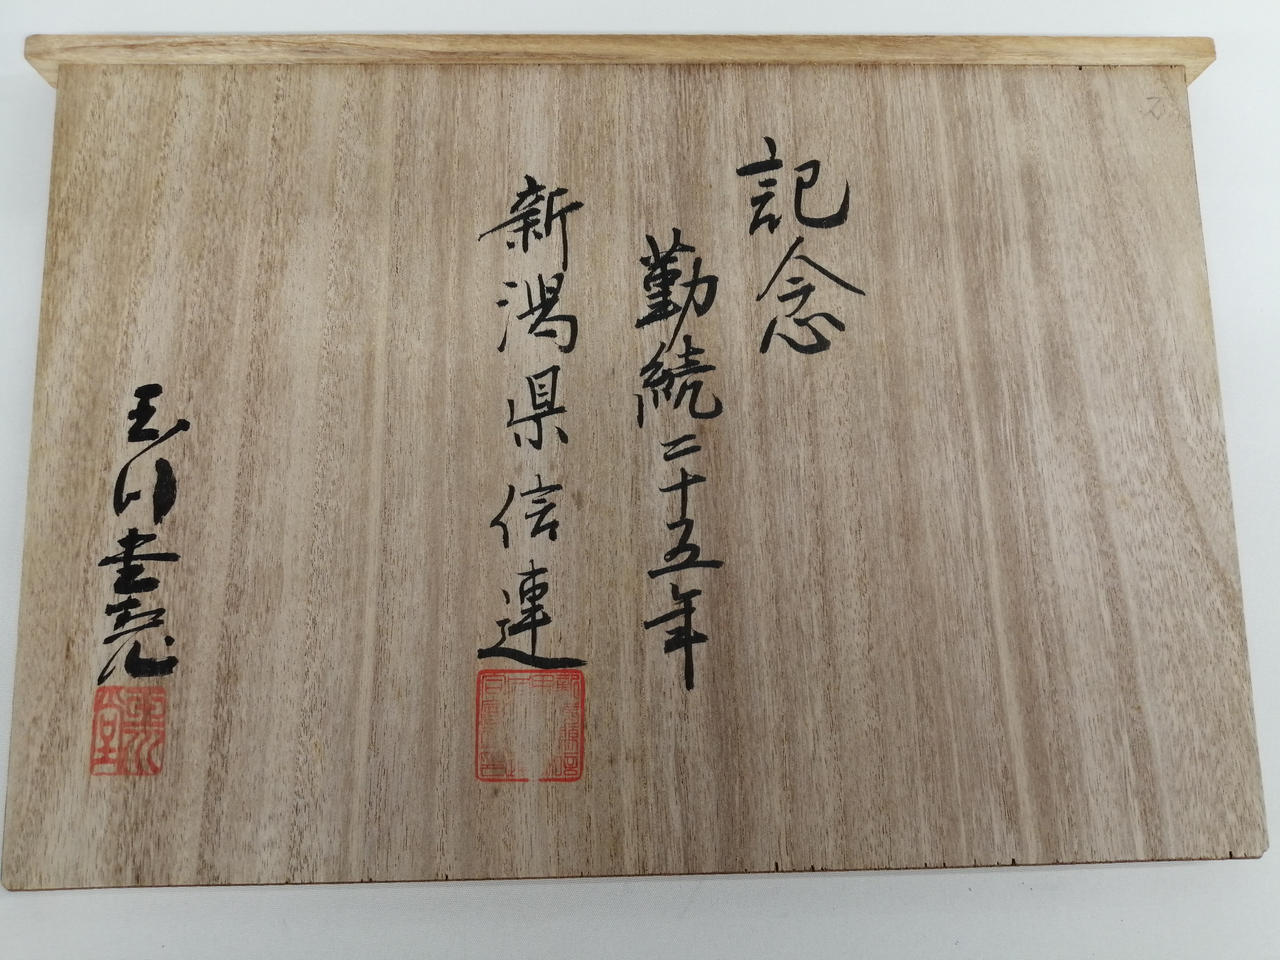 記念
勤続二十五年
新潟県信連
玉川堂
玉川堂